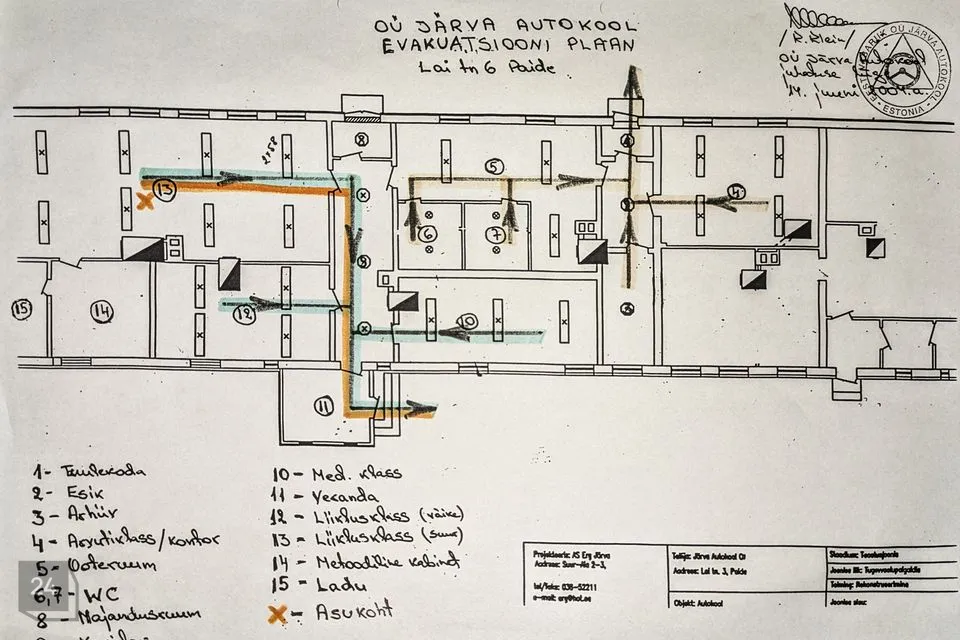 OÜ JÄRVA AUTOKOOL
EVAKUATSIOONI PLAAN
Lai tn 6 Paide
/R. Klein/
OÜ Järva
juhatuse
14. juuni 2004.a.
EESTI VABARIIK OÜ JÄRVA AUTOKOOL
ESTONIA
8
5
13
6
7
4
9
12
10
14
15
11
1 - Tuulekoda
2 - Esik
3 - Arhiiv
4 - Arvutiklass/kontor
5 - Ooteruum
6,7 - WC
8 - Majandusruum
10 - Med. klass
11 - Veranda
12 - Liiklusklass (väike)
13 - Liiklusklass (suur)
14 - Metoodiline kabinet
15 - Ladu
x - Asukoht
24
Projekteeris: AS Erg Järva
Aadress: Suur-Aia 2-3,
tel/faks: 038-52211
e-mail: erg@hot.ee
Tellija: Järva Autokool OÜ
Aadress: Lai tn. 3, Paide
Objekt: Autokool
Staadium: Tööjoonis
Joonise nr:
Joonise sisu: